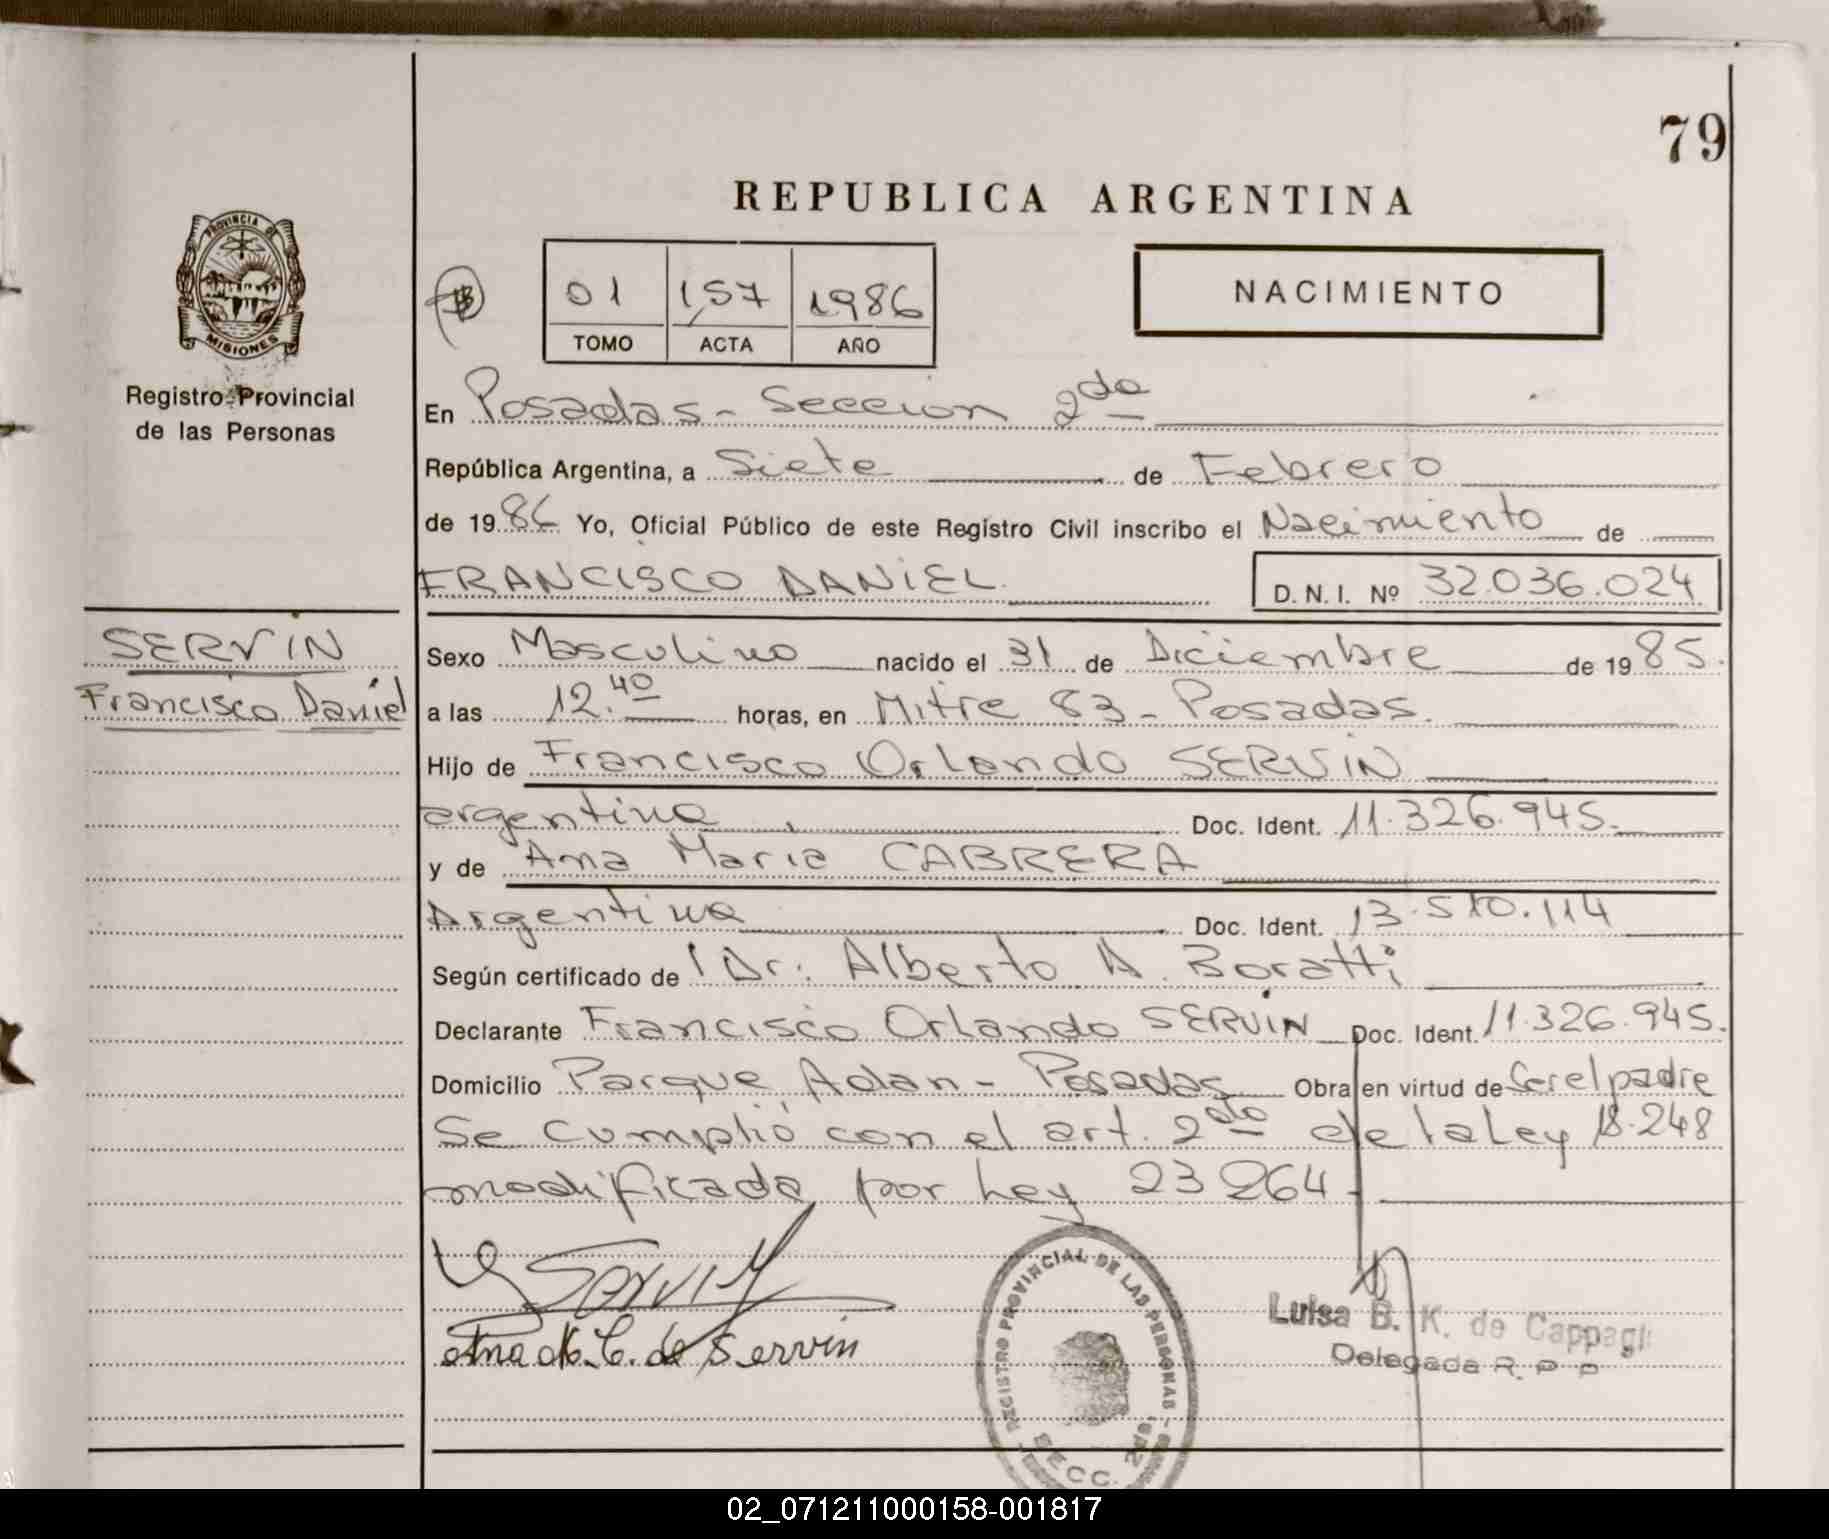 79
REPUBLICA ARGENTINA
PROVINCIA DE
MISIONES
Registro Provincial
de las Personas
01 157 1986
TOMO ACTA AÑO
NACIMIENTO
En Posadas - Seccion 2da
República Argentina, a Siete de Febrero
de 1986 Yo, Oficial Público de este Registro Civil inscribo el Nacimiento de
FRANCISCO DANIEL D. N. I. Nº 32.036.024
SERVIN
Francisco Daniel
Sexo Masculino nacido el 31 de Diciembre de 1985.
a las 12.40 horas, en Mitre 83 - Posadas.
Hijo de Francisco Orlando SERVIN
argentino Doc. Ident. 11.326.945.
y de Ana Maria CABRERA
Argentina Doc. Ident. 13.510.114
Según certificado de Dr. Alberto A. Boratti
Declarante Francisco Orlando SERVIN Doc. Ident. 11.326.945.
Domicilio Parque Adan - Posadas Obra en virtud de Ser el padre
Se cumplió con el art. 2do de la Ley 18.248
modificada por Ley 23264 -
Servin
Ana M. C. de Servin
REGISTRO PROVINCIAL DE LAS PERSONAS
SECC. 2da.
Luisa B. K. de Cappagli
Delegada R. P. P.
02_071211000158-001817